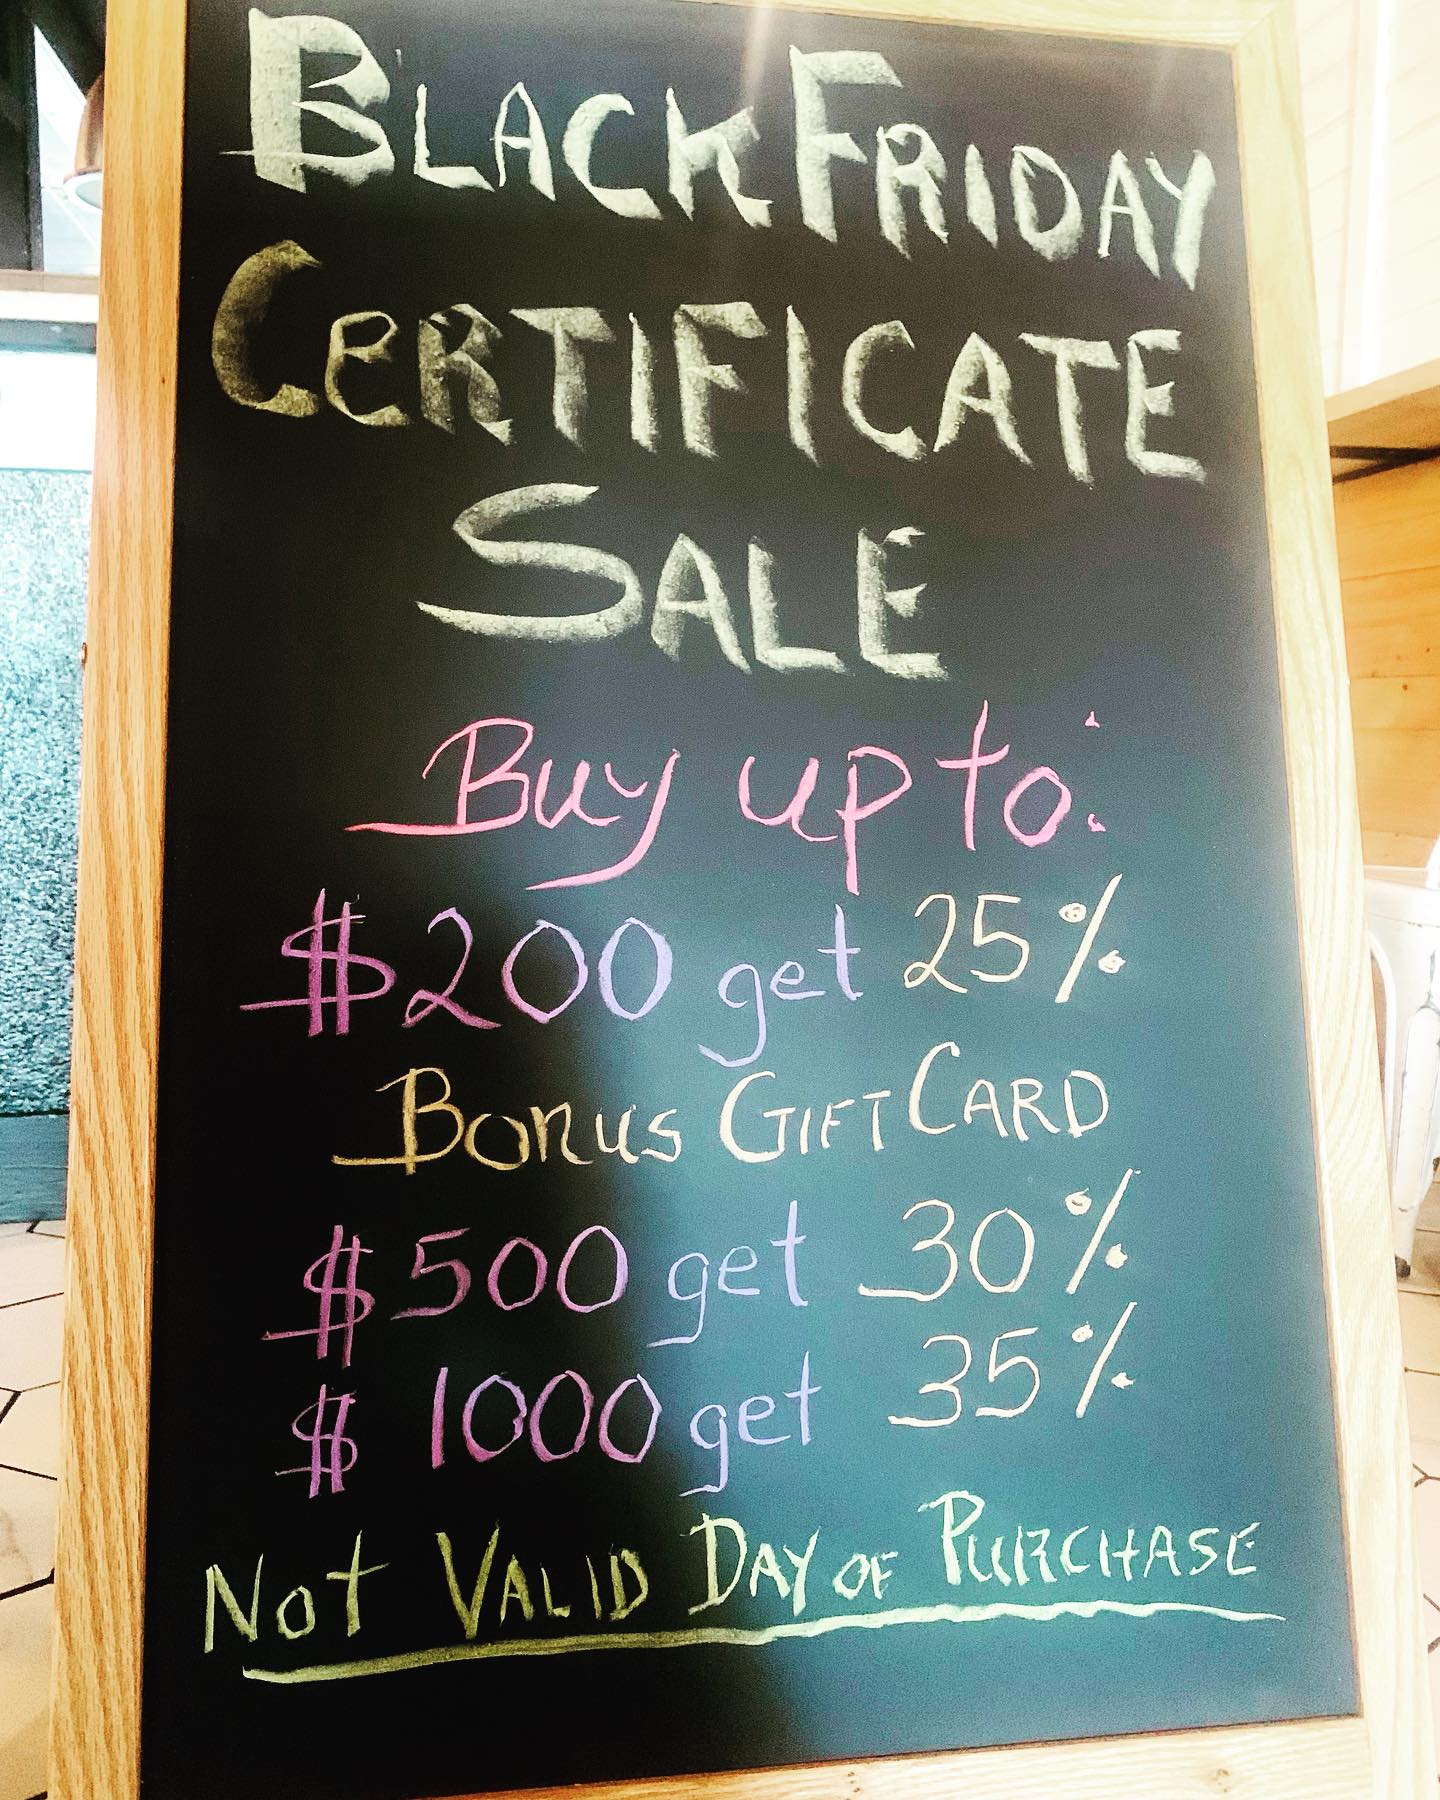 BLACK FRIDAY
CeRTIFICATE
SALE
Buy up to:
$200 get 25%
BonuS GIFT CARD
$500 get 30%
$1000 get 35%
Not VALID DAY OF PURCHASE